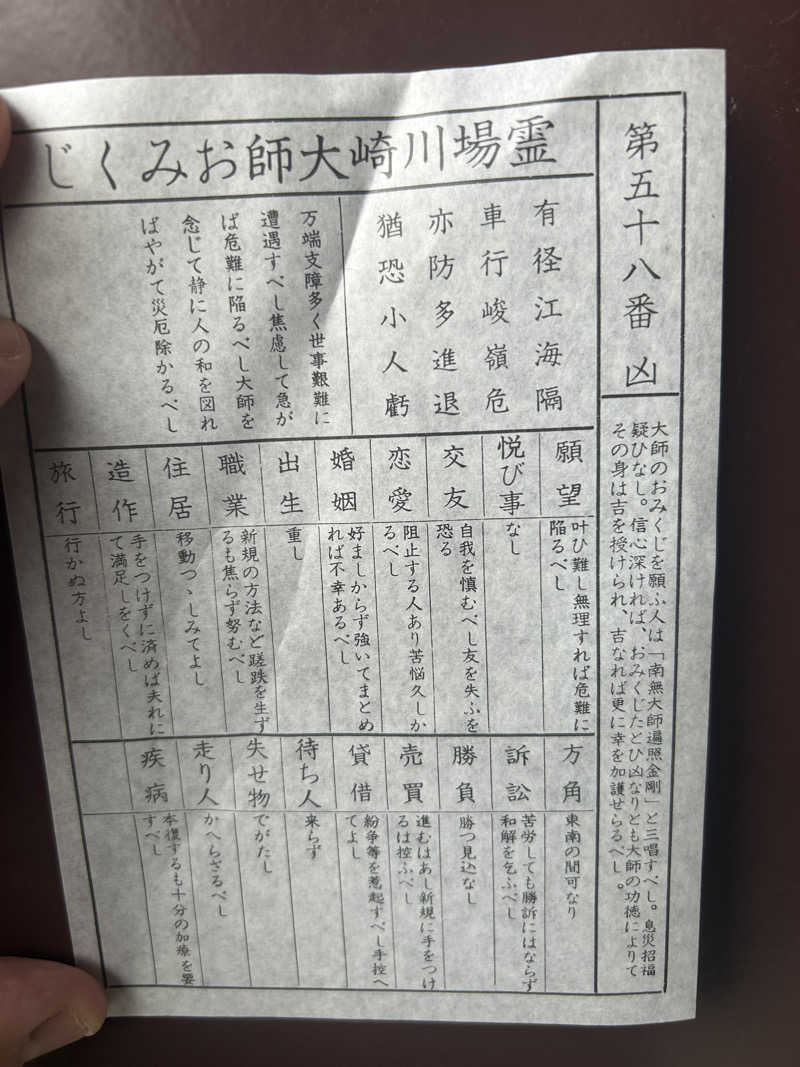 第五十八番 凶
大師のおみくじを願ふ人は「南無大師遍照金剛」と三唱すべし。息災招福
疑ひなし。信心深ければ、おみくじたとひ凶なりとも大師の功徳によりて
その身は吉を授けられ、吉なれば更に幸を加護せらるべし。
霊場川崎大師おみくじ
有径江海隔
車行峻嶺危
亦防多進退
猶恐小人虧
万端支障多く世事艱難に
遭遇すべし焦慮して急が
ば危難に陥るべし大師を
念じて静に人の和を図れ
ばやがて災厄除かるべし
願望
叶ひ難し無理すれば危難に
陥るべし
悦び事
なし
交友
自我を慎むべし友を失ふを
恐る
恋愛
阻止する人あり苦悩久しか
るべし
婚姻
好ましからず強いてまとめ
れば不幸あるべし
出生
重し
職業
新規の方法など蹉跌を生ず
るも焦らず努むべし
住居
移動つゝしみてよし
造作
手をつけずに済めば夫れに
て満足しをくべし
旅行
行かぬ方よし
方角
東南の間可なり
訴訟
苦労しても勝訴にはならず
和解を乞ふべし
勝負
勝つ見込なし
売買
進むはあし新規に手をつけ
るは控ふべし
貸借
紛争等を惹起すべし手控へ
てよし
待ち人
来らず
失せ物
でがたし
走り人
かへらざるべし
疾病
本復するも十分の加療を要
すべし